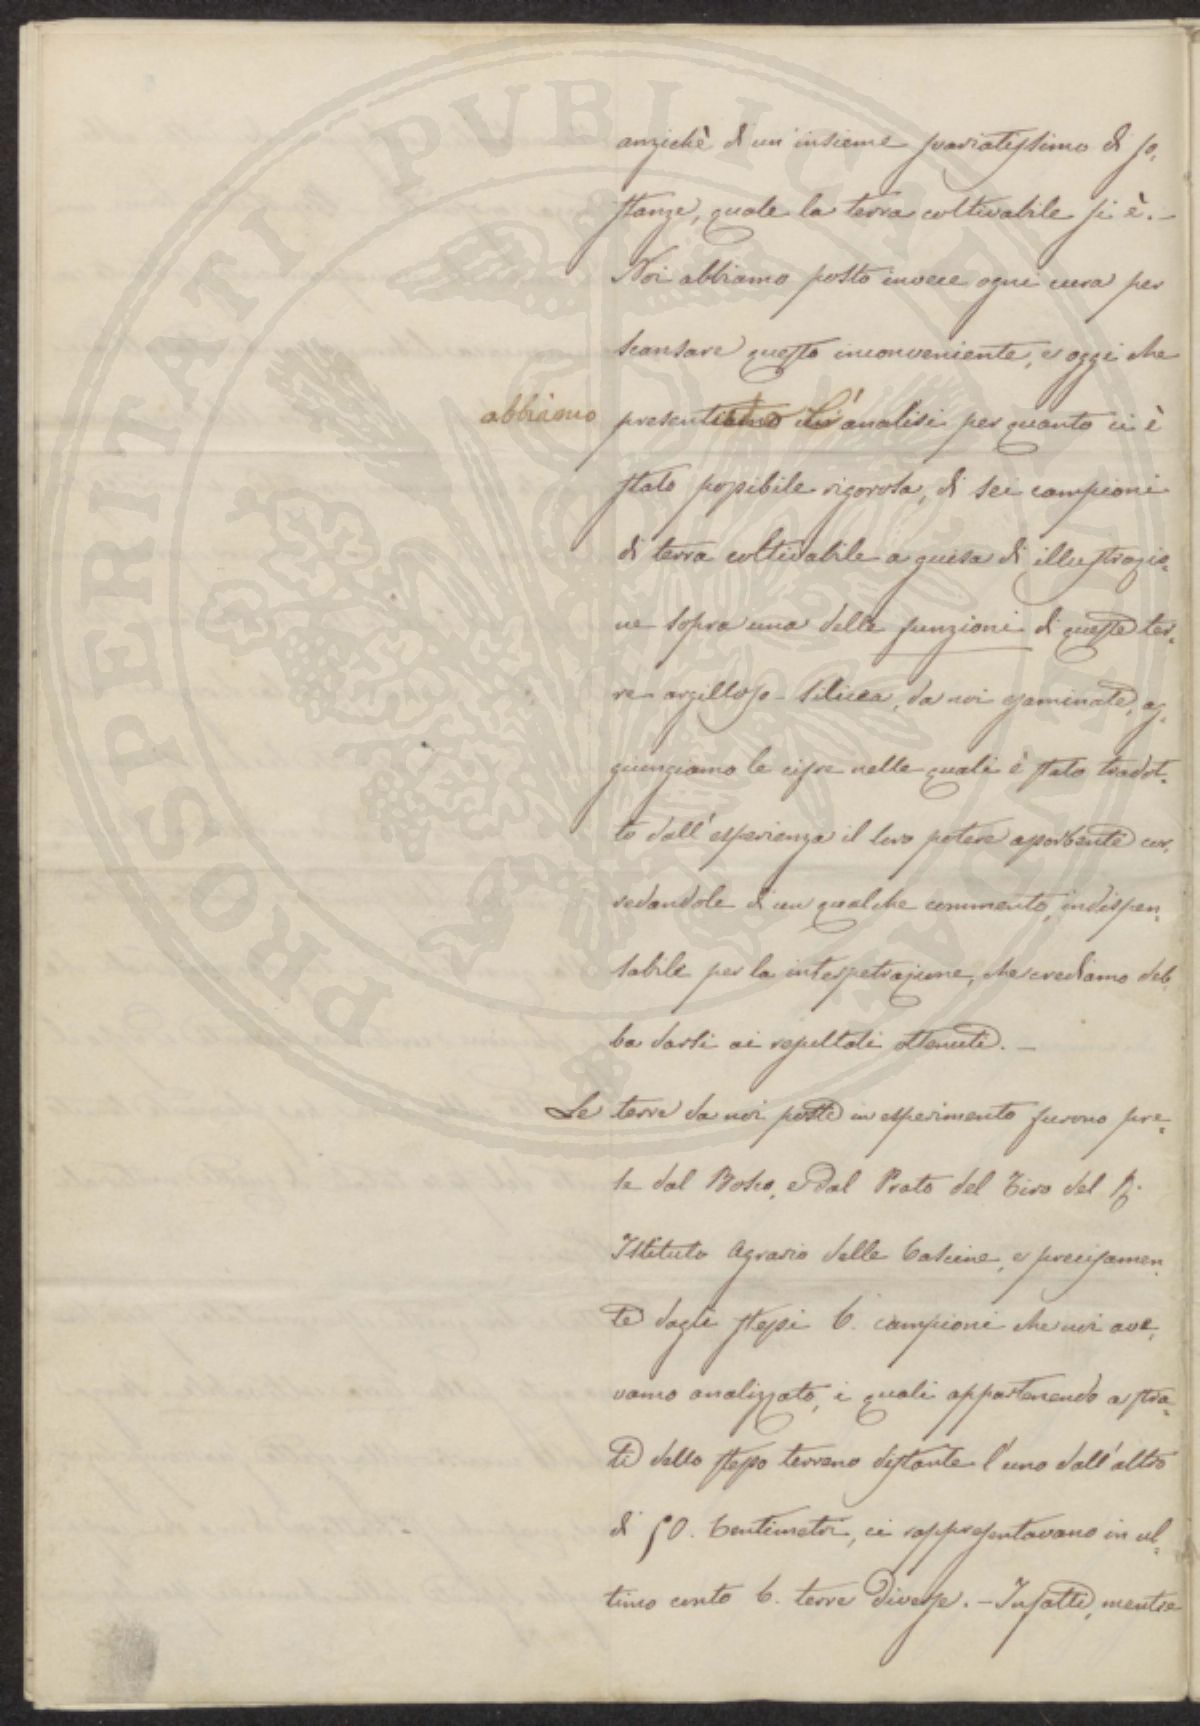 anzichè d'un'insieme svariatissimo di so,
stanze, quale la terra coltivabile si è. –
Noi abbiamo posto invece ogni cura per
scansare questo inconveniente, e oggi che
abbiamo
presentiamo l'analisi per quanto ci è
stato possibile rigorosa, di sei campioni
di terra coltivabile a guisa di illustrazio=
ne sopra una delle funzioni di queste ter=
re argilloso-silicea, da noi esaminate, ag=
giungiamo le cifre nelle quali è stato tradot=
to dall'esperienza il loro potere assorbente cor,
redandole d'un qualche commento, indispen=
sabile per la interpetrazione, che crediamo deb
ba darsi ai resultati ottenuti. –
Le terre da noi poste in esperimento furono pre=
se dal Bosco, e dal Prato del Tiro del R.
Istituto Agrario delle Cascine, e precisamen
te dagli stessi 6. campioni che noi ave,
vamo analizzato, i quali appartenendo a stra=
ti dello stesso terreno distante l'uno dall'altro
di 50. Centimetri, ci rappresentavano in ul=
timo conto 6. terre diverse. – Infatti, mentre
PROSPERITATI PUBLICAE AUGENDAE